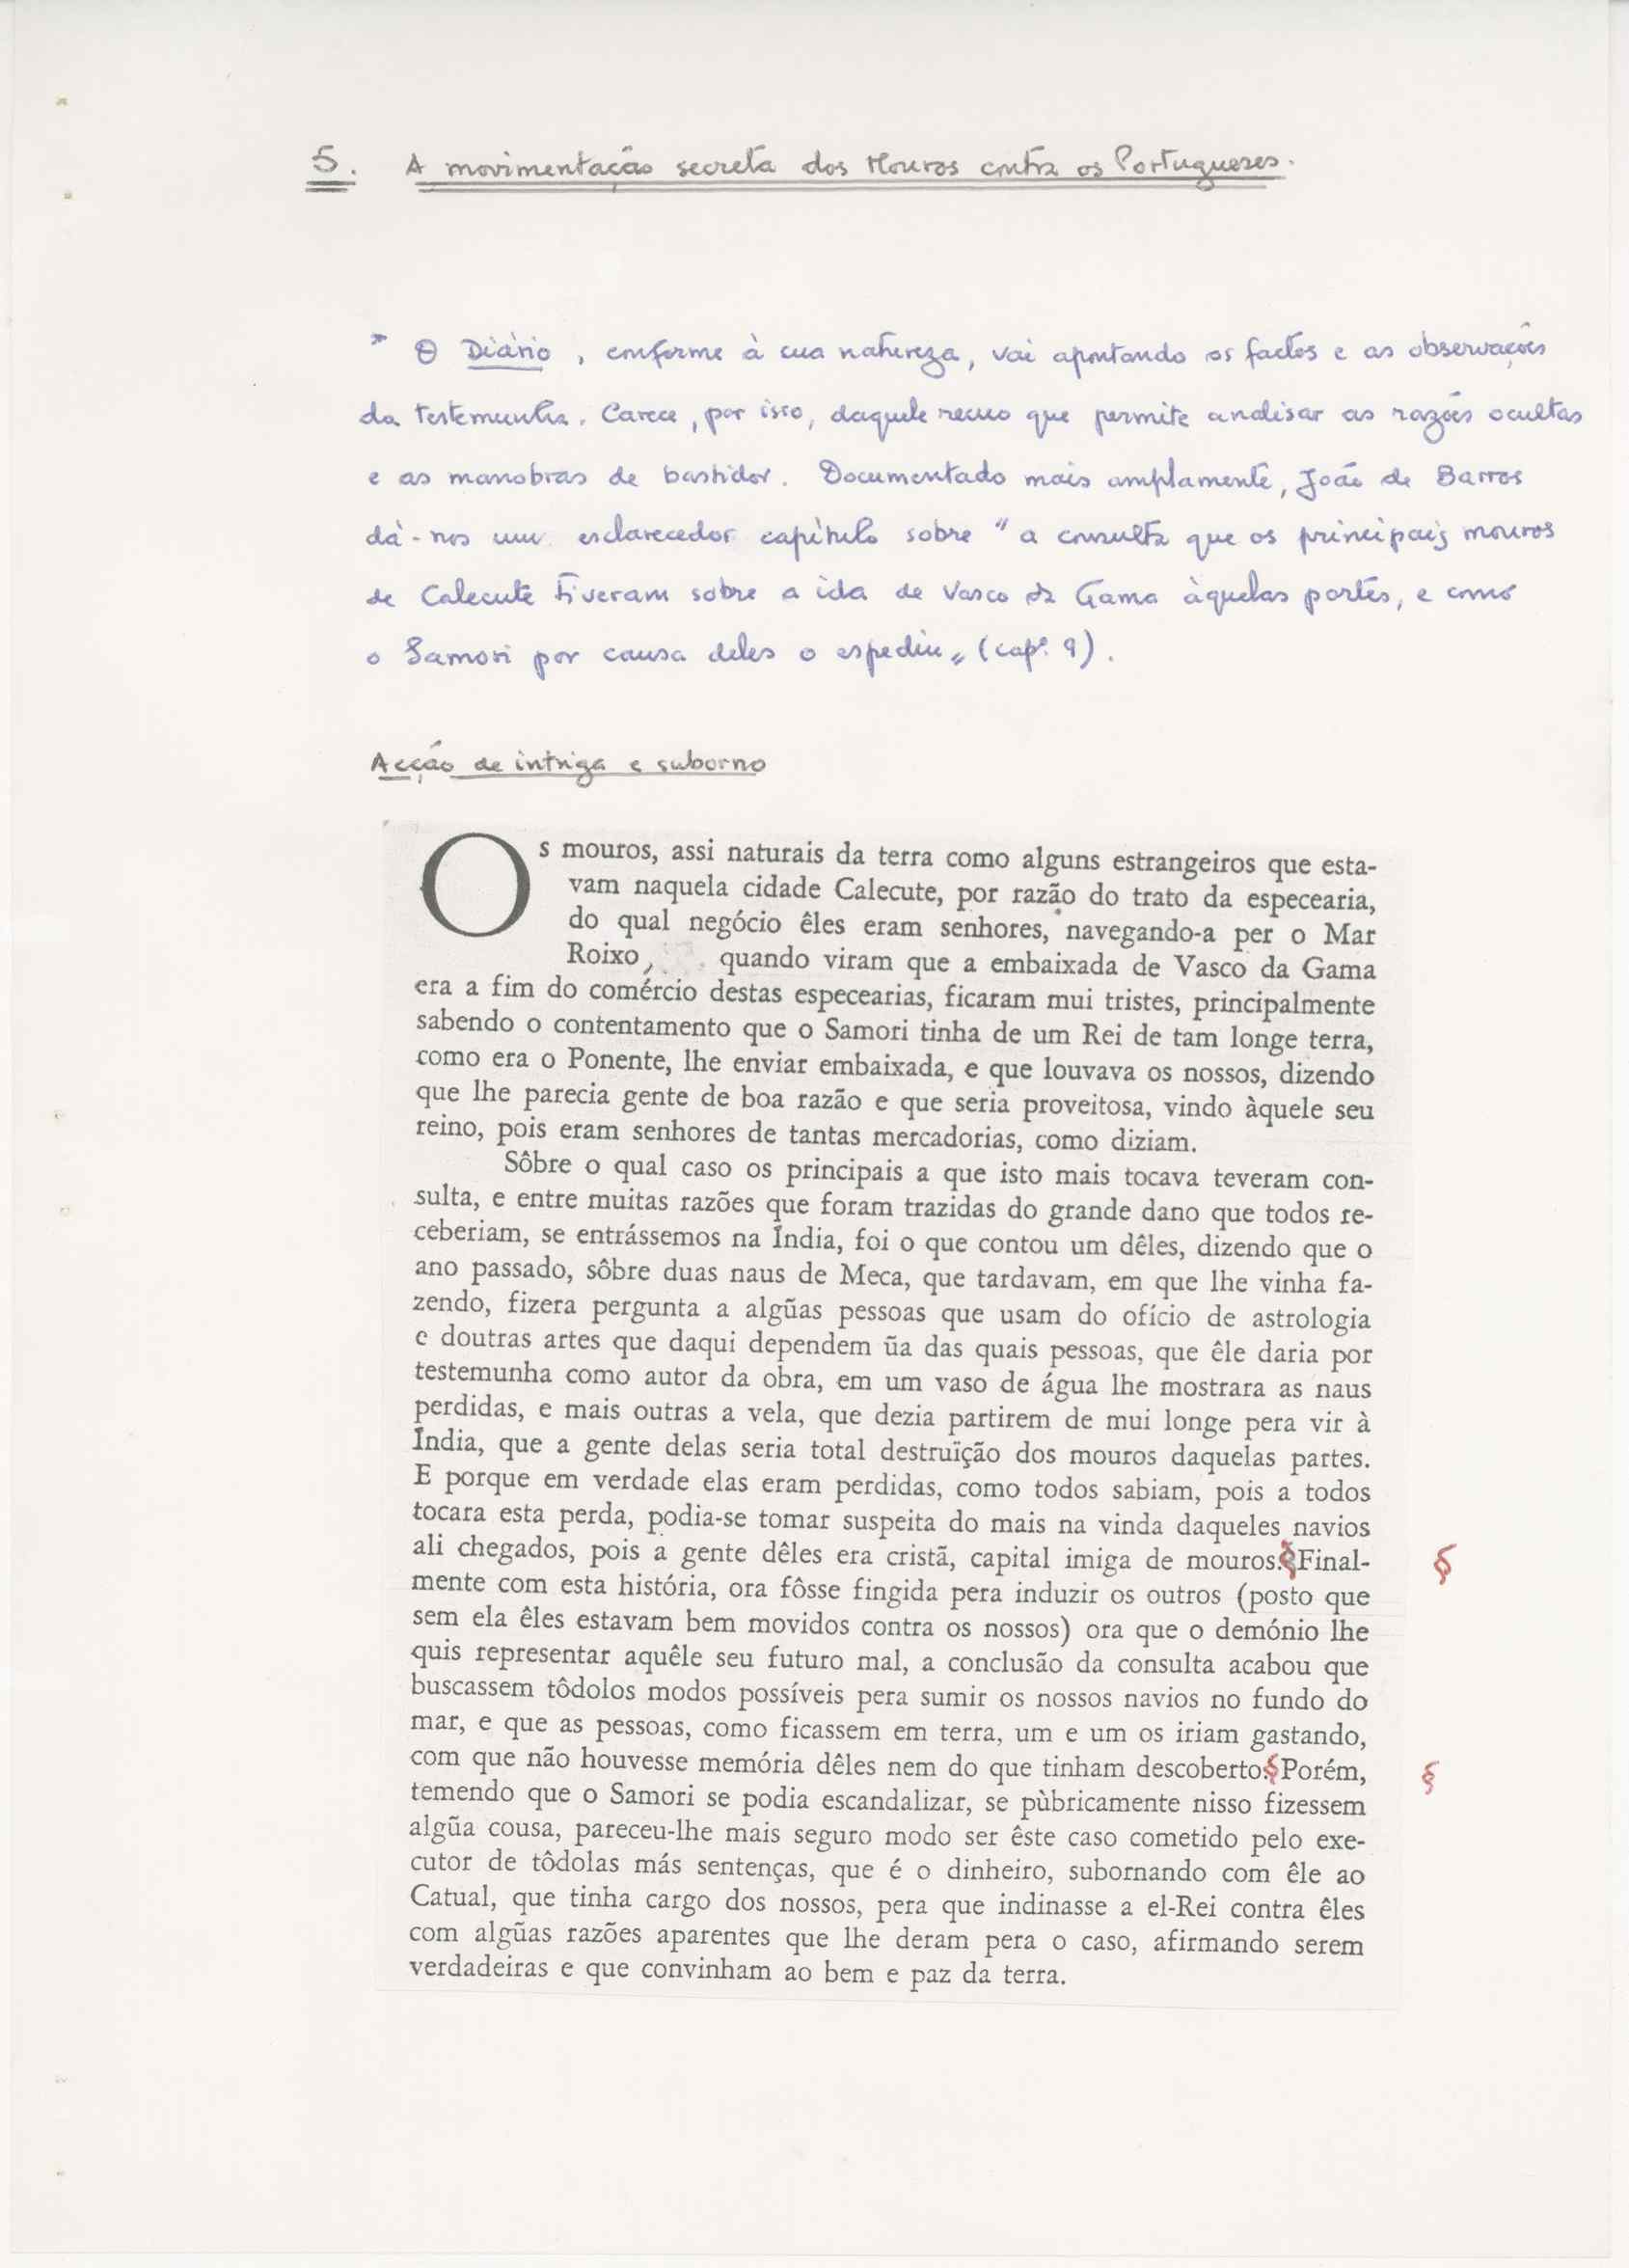 5. A movimentação secreta dos Mouros contra os Portugueses.
* O Diário, conforme à sua natureza, vai apontando os factos e as observações
da testemunha. Carece, por isso, daquele recuo que permite analisar as razões ocultas
e as manobras de bastidor. Documentado mais amplamente, João de Barros
dá-nos um esclarecedor capítulo sobre "a consulta que os principais mouros
de Calecute tiveram sobre a ida de Vasco da Gama àquelas partes, e como
o Samori por causa deles o espediu" (cap.º 9).
Acção de intriga e suborno
Os mouros, assi naturais da terra como alguns estrangeiros que esta-
vam naquela cidade Calecute, por razão do trato da especearia,
do qual negócio êles eram senhores, navegando-a per o Mar
Roixo, quando viram que a embaixada de Vasco da Gama
era a fim do comércio destas especearias, ficaram mui tristes, principalmente
sabendo o contentamento que o Samori tinha de um Rei de tam longe terra,
como era o Ponente, lhe enviar embaixada, e que louvava os nossos, dizendo
que lhe parecia gente de boa razão e que seria proveitosa, vindo àquele seu
reino, pois eram senhores de tantas mercadorias, como diziam.
Sôbre o qual caso os principais a que isto mais tocava teveram con-
sulta, e entre muitas razões que foram trazidas do grande dano que todos re-
ceberiam, se entrássemos na Índia, foi o que contou um dêles, dizendo que o
ano passado, sôbre duas naus de Meca, que tardavam, em que lhe vinha fa-
zendo, fizera pergunta a algũas pessoas que usam do ofício de astrologia
e doutras artes que daqui dependem ũa das quais pessoas, que êle daria por
testemunha como autor da obra, em um vaso de água lhe mostrara as naus
perdidas, e mais outras a vela, que dezia partirem de mui longe pera vir à
Índia, que a gente delas seria total destruïção dos mouros daquelas partes.
E porque em verdade elas eram perdidas, como todos sabiam, pois a todos
tocara esta perda, podia-se tomar suspeita do mais na vinda daqueles navios
ali chegados, pois a gente dêles era cristã, capital imiga de mouros.§Final- §
mente com esta história, ora fôsse fingida pera induzir os outros (posto que
sem ela êles estavam bem movidos contra os nossos) ora que o demónio lhe
quis representar aquêle seu futuro mal, a conclusão da consulta acabou que
buscassem tôdolos modos possíveis pera sumir os nossos navios no fundo do
mar, e que as pessoas, como ficassem em terra, um e um os iriam gastando,
com que não houvesse memória dêles nem do que tinham descoberto.§Porém, §
temendo que o Samori se podia escandalizar, se pùbricamente nisso fizessem
algũa cousa, pareceu-lhe mais seguro modo ser êste caso cometido pelo exe-
cutor de tôdolas más sentenças, que é o dinheiro, subornando com êle ao
Catual, que tinha cargo dos nossos, pera que indinasse a el-Rei contra êles
com algũas razões aparentes que lhe deram pera o caso, afirmando serem
verdadeiras e que convinham ao bem e paz da terra.